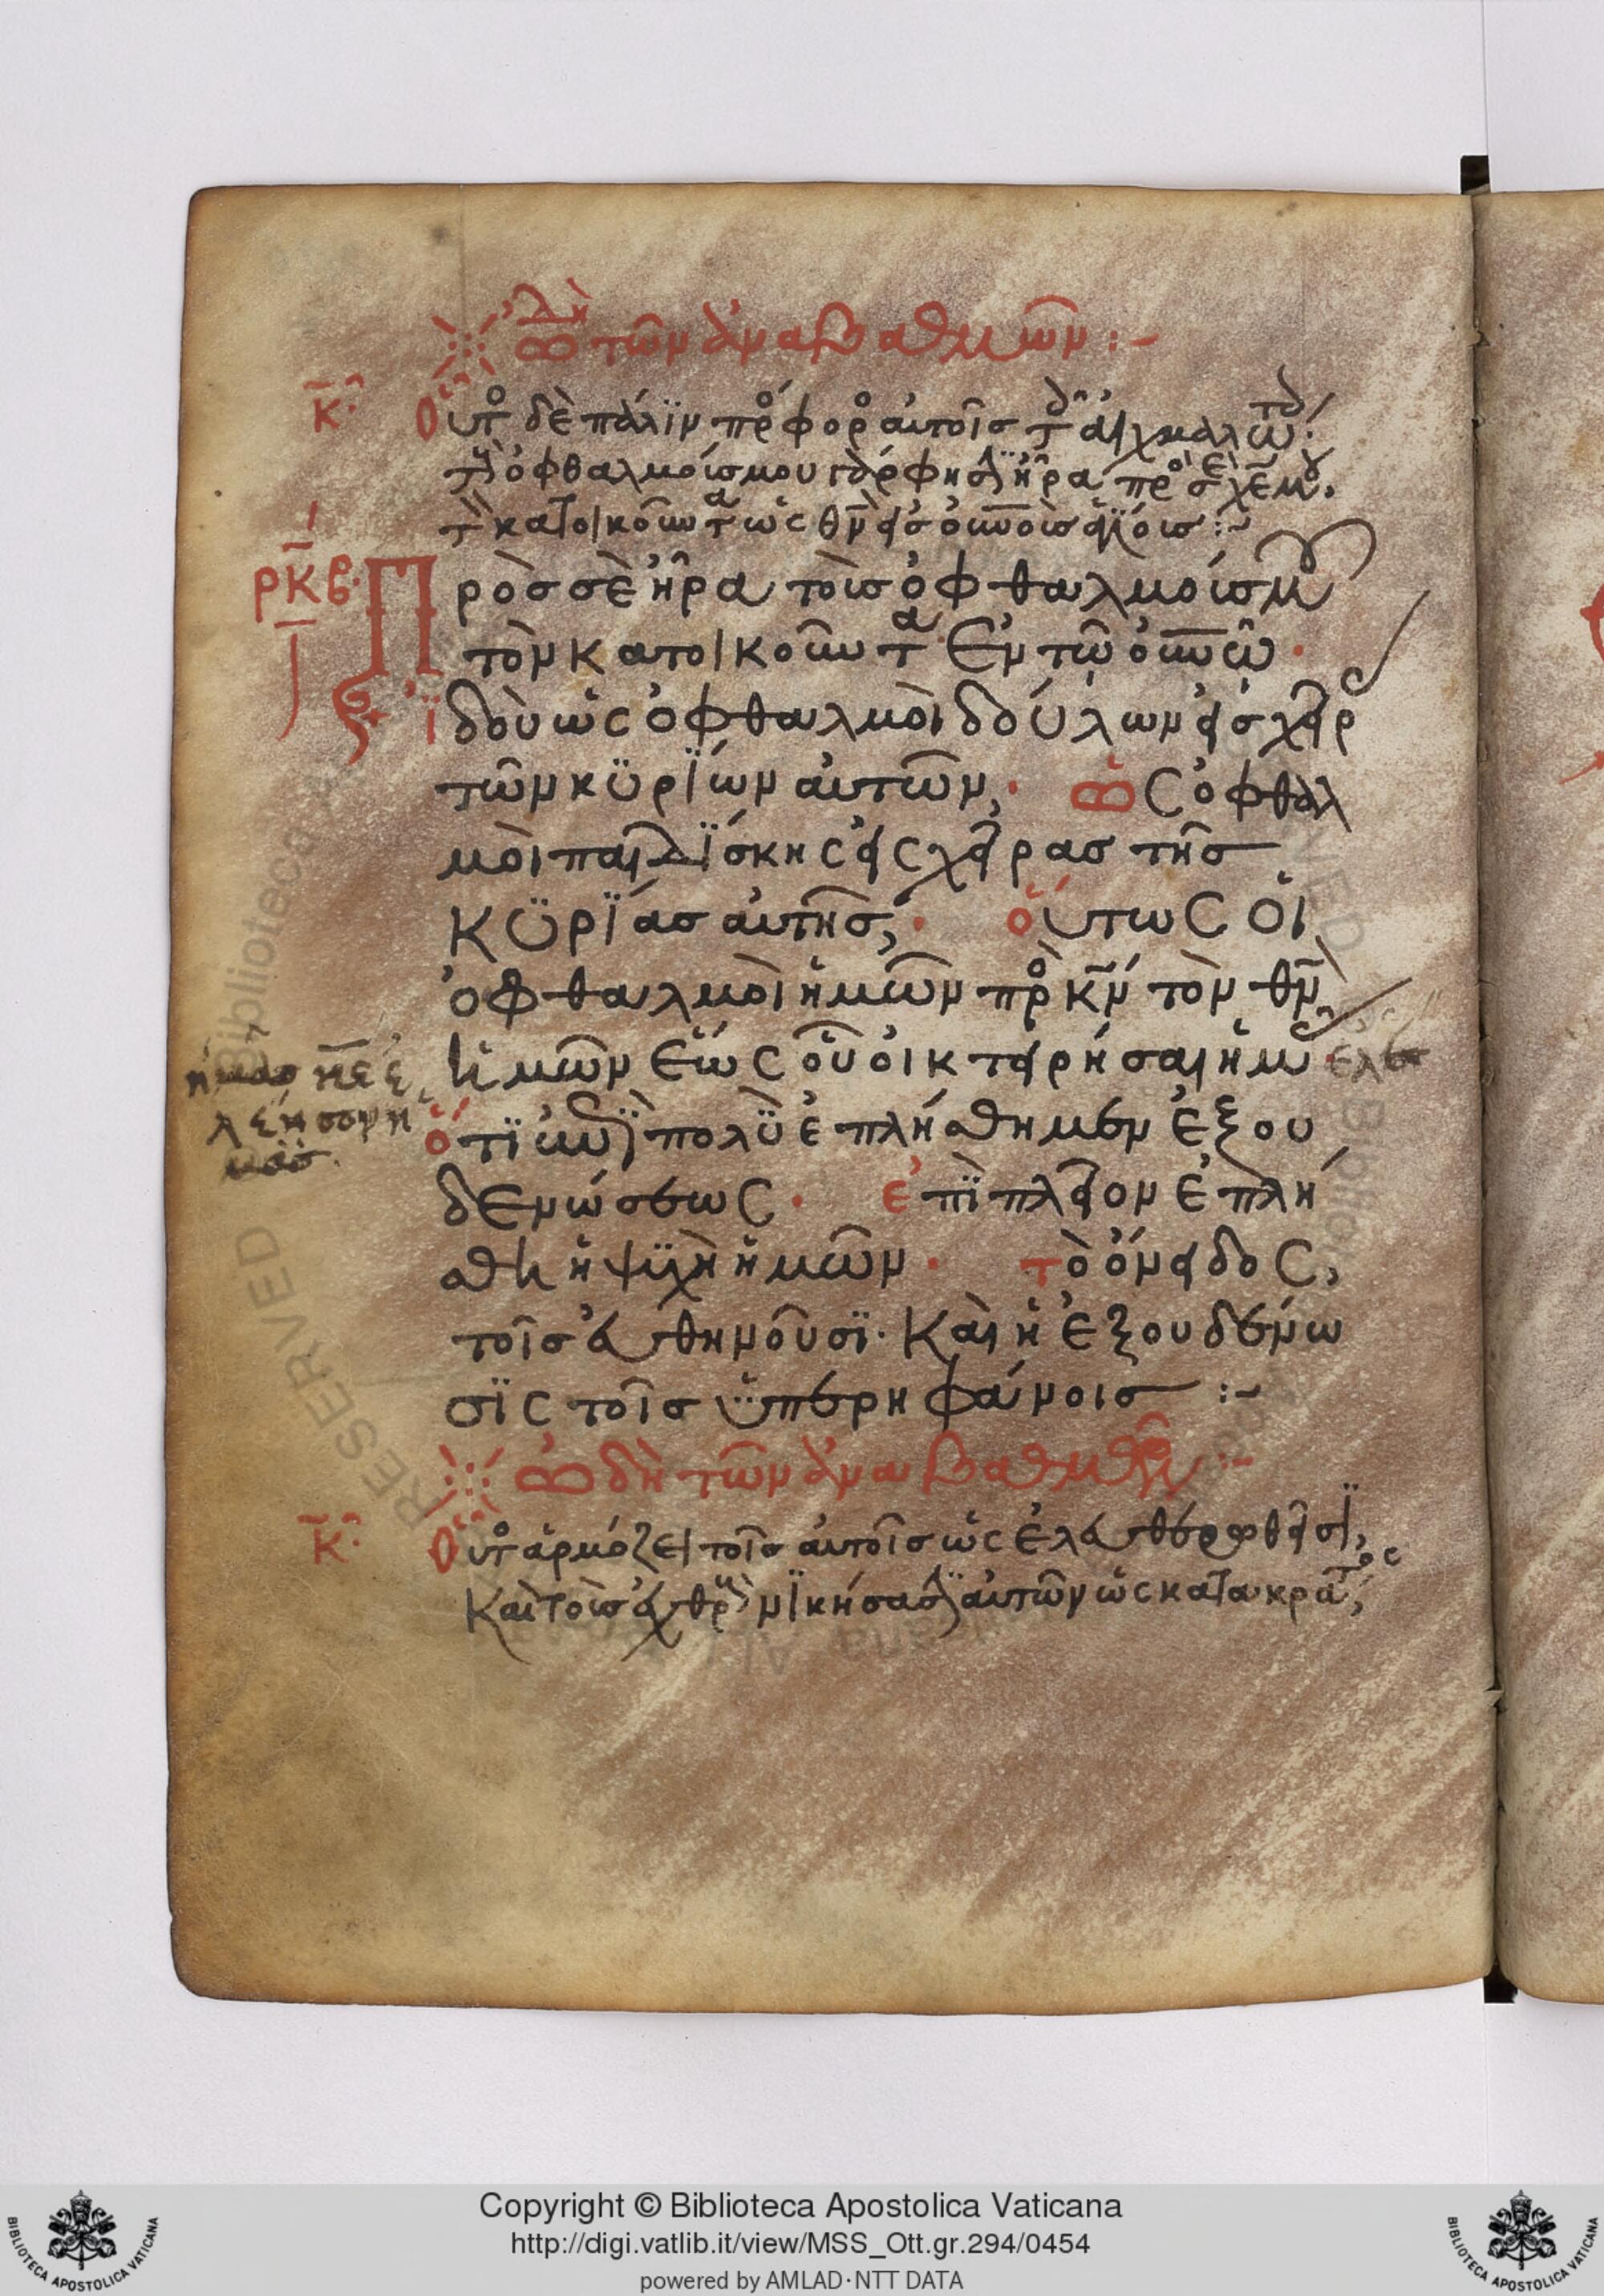 ὠδὴ τῶν ἀναβαθμῶν :-
κ̄. Οὗτ δὲ πάλϊν πρ φορ αὐτοῖσ τ αἰχμαλω
ὀφθαλμοίσ μου ἦρα πρ
τ κατοικοῦντα ὡς θν εἰσ οὐνοὶσ
ρκβ. Πρὸσ σὲ ἦρα τοὶσ ὀφθαλμοίσ μου
τὸν κατοικοῦντα ἐν τῶ οὐνῶ.
ϊδοὺ ὡς ὀφθαλμοὶ δούλων εἰσ χεῖρ
τῶν κϋρϊων αὐτῶν, ὡς ὀφθαλ
μοὶ παιδϊσκης εἰς χεῖρασ τῆσ
κϋρϊασ αὐτῆσ, οὕτως οἱ
ὀφθαλμοὶ ἡμῶν πρ κν τὸν θν
ἡμῶν ἕως οὗ οἰκτειρήσαι ἡμ
ὅτϊ πολϋ ἐπλήσθημεν ἐξου
δενώσεως. ἐπϊ πλεῖον ἐπλή
σθη ἡ ψϋχὴ ἡμῶν. τὸ ὄνειδος,
τοῖσ εὐθηνοῦσϊ. Καὶ ἡ ἐξουδένω
σϊς τοῖσ ϋπερηφάνοισ :-
ὠδὴ τῶν ἀναβαθμῶν :-
κ̄. Οὗτ ἁρμόζει τοῖσ αὐτοῖσ ὡς ἐλευθερωθεῖσϊ,
Καὶ τοὶσ ἐχθρ νϊκήσασϊ αὐτῶν ὡς κατακρα
Copyright © Biblioteca Apostolica Vaticana
http://digi.vatlib.it/view/MSS_Ott.gr.294/0454
powered by AMLAD·NTT DATA
BIBLIOTECA APOSTOLICA VATICANA
BIBLIOTECA APOSTOLICA VATICANA